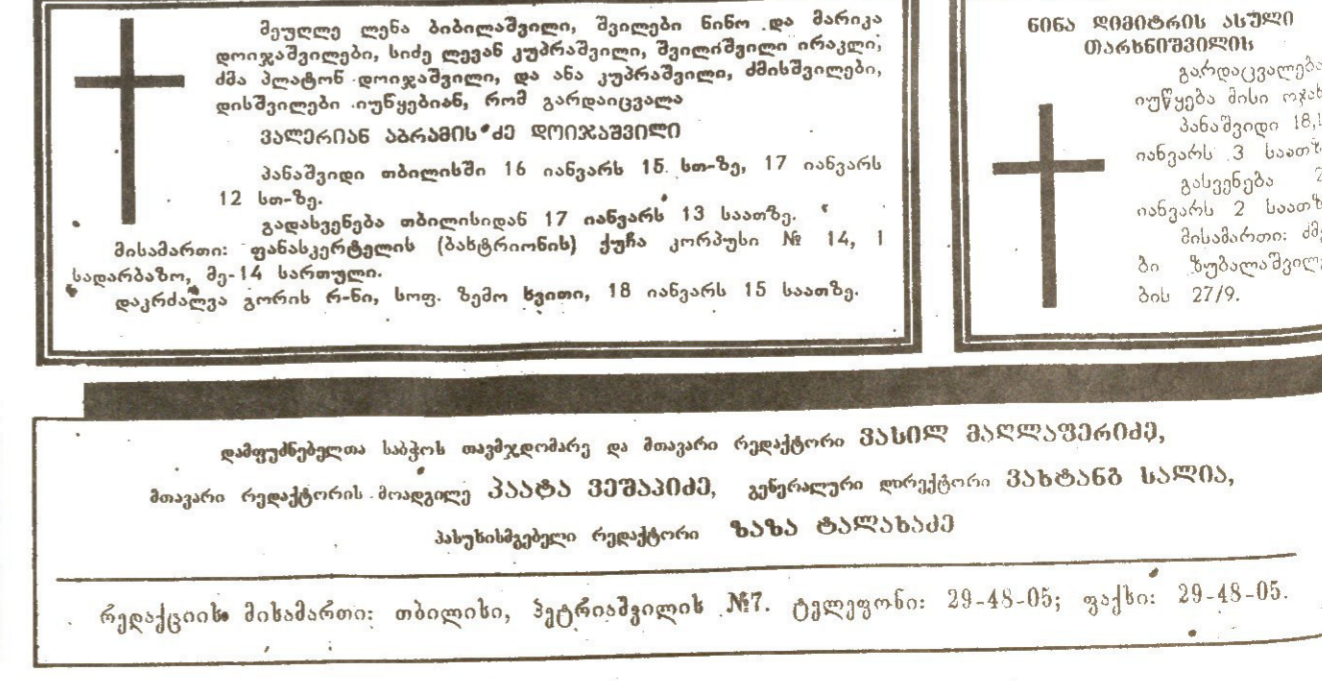 მეუღლე ლენა ბიბილაშვილი, შვილები ნინო და მარიკა
დოიჯაშვილები, სიძე ლევან კუპრაშვილი, შვილიშვილი ირაკლი,
ძმა პლატონ დოიჯაშვილი, და ანა კუპრაშვილი, ძმისშვილები,
დისშვილები იუწყებიან, რომ გარდაიცვალა
ვალერიან აბრამის ძე დოიჯაშვილი
პანაშვიდი თბილისში 16 იანვარს 15 სთ-ზე, 17 იანვარს
12 სთ-ზე.
გადასვენება თბილისიდან 17 იანვარს 13 საათზე.
მისამართი: ფანასკერტელის (ბახტრიონის) ქუჩა კორპუსი № 14, 1
სადარბაზო, მე-14 სართული.
დაკრძალვა გორის რ-ნი, სოფ. ზემო ხვითი, 18 იანვარს 15 საათზე.
ნინა დიმიტრის ასული
თარხნიშვილის
გარდაცვალება
იუწყება მისი
პანაშვიდი 18,
იანვარს 3
გასვენება
იანვარს 2
მისამართი:
ბი
ბის 27/9.
დამფუძნებელთა საბჭოს თავმჯდომარე და მთავარი რედაქტორი ვასილ მაღლაფერიძე,
მთავარი რედაქტორის მოადგილე პაატა ვეშაპიძე, გენერალური დირექტორი ვახტანგ სალია,
პასუხისმგებელი რედაქტორი ზაზა ტალახაძე
რედაქციის მისამართი: თბილისი, პეტრიაშვილის №7. ტელეფონი: 29-48-05; ფაქსი: 29-48-05.